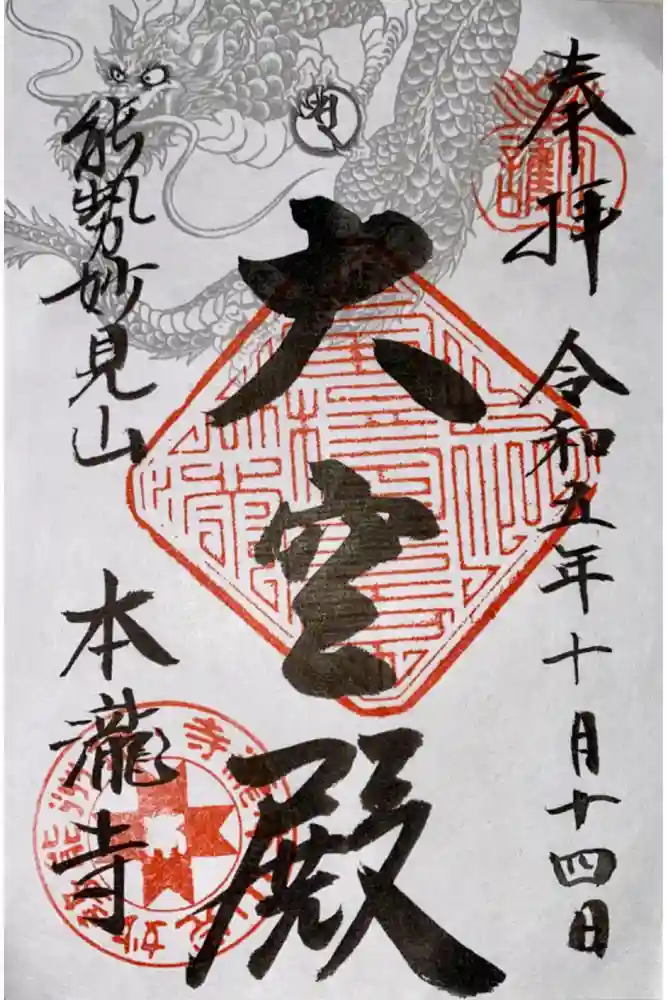 奉拝
令和五年十月十四日
大空殿
能勢妙見山
本瀧寺